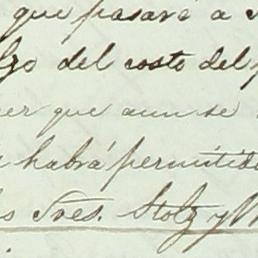 que pasaré a
del costo del
que aun se
habrá permitido
Sres. Stolz y